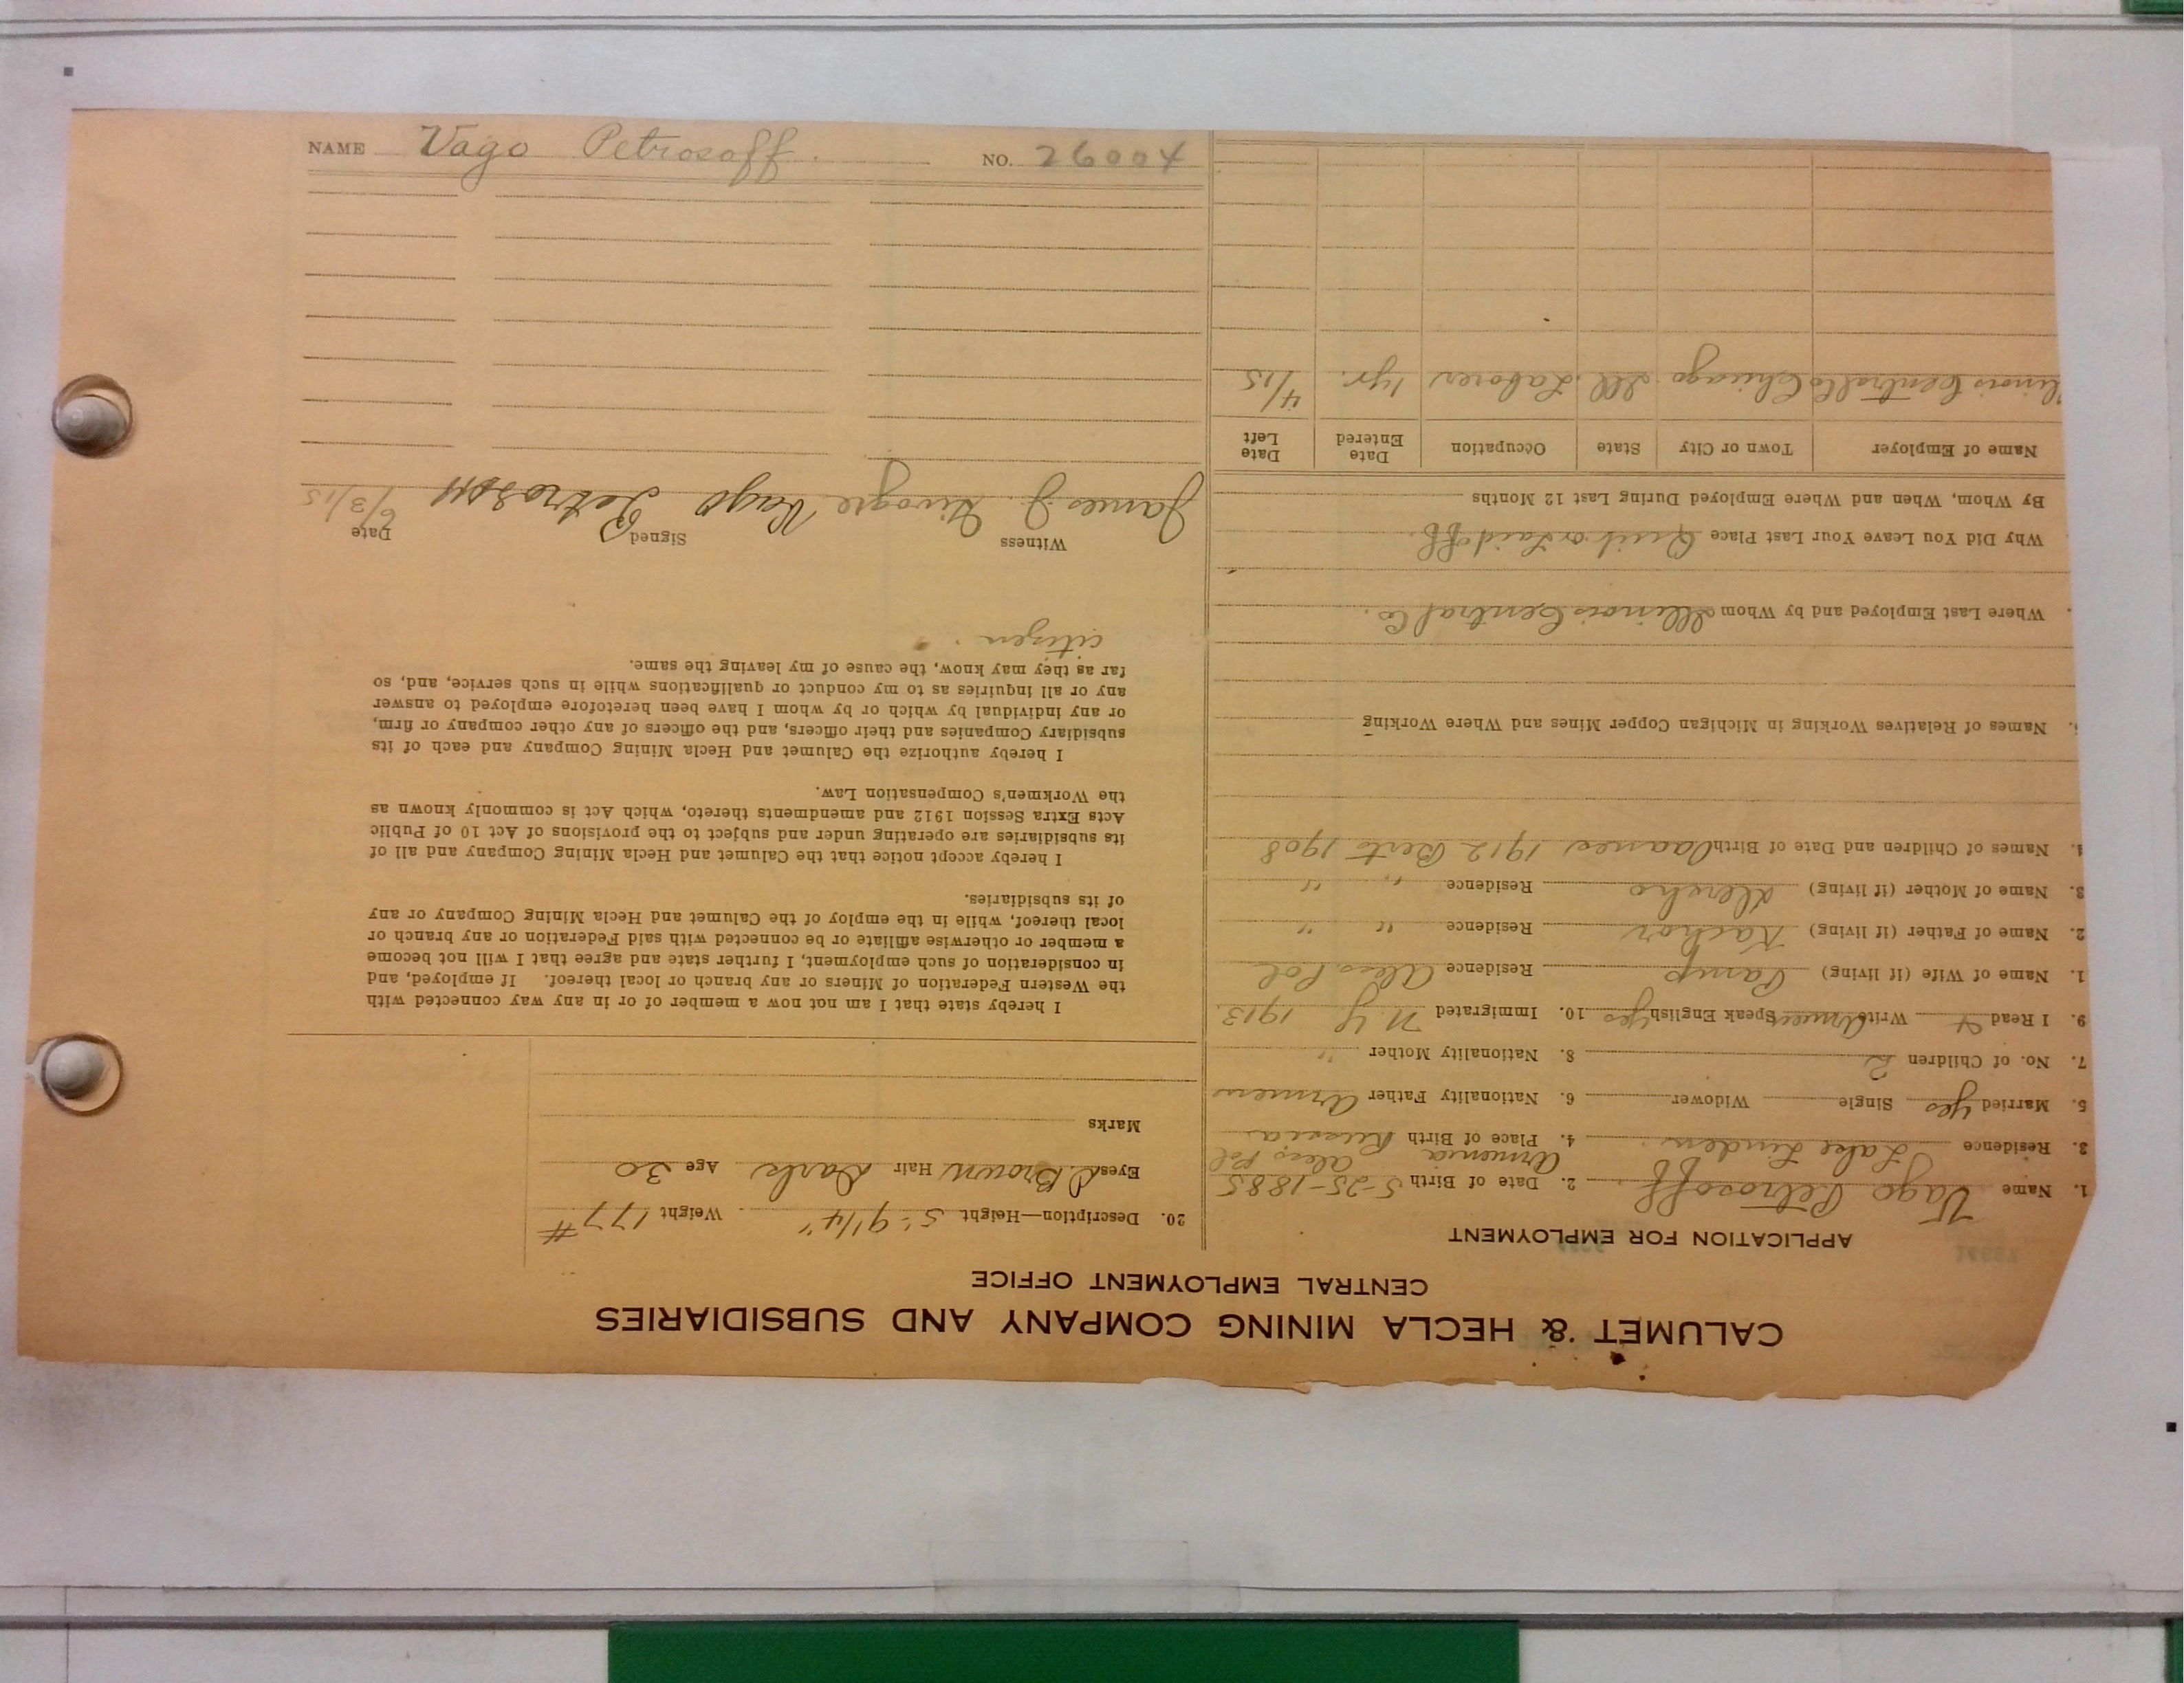 NAME Vago Petrosoff. NO. 26004
CALUMET & HECLA MINING COMPANY AND SUBSIDIARIES
CENTRAL EMPLOYMENT OFFICE
APPLICATION FOR EMPLOYMENT
1. Name Vago Petrosoff. 2. Date of Birth 5-25-1885
Armenia Alex Pol
3. Residence Lake Linden. 4. Place of Birth Russia
5. Married yes Single Widower 6. Nationality Father Armen
7. No. of Children 2 8. Nationality Mother "
9. I Read + Write Armen Speak English yes 10. Immigrated N.Y 1913.
1. Name of Wife (if living) Residence Alex Pol
2. Name of Father (if living) Kachor Residence " "
3. Name of Mother (if living) Residence " "
4. Names of Children and Date of Birth 1912 1908
Names of Relatives Working in Michigan Copper Mines and Where Working
Where Last Employed and by Whom Illinois Central Co.
Why Did You Leave Your Last Place Quit or Laid off.
By Whom, When and Where Employed During Last 12 Months
Name of Employer Town or City State Occupation Date Entered Date Left
linois Central Co Chicago Ill Laborer 1 yr. 4/15
20. Description—Height 5' 9 1/4" Weight 177 #
Eyes Brown Hair Dark Age 30
Marks
I hereby state that I am not now a member of or in any way connected with
the Western Federation of Miners or any branch or local thereof. If employed, and
in consideration of such employment, I further state and agree that I will not become
a member or otherwise affiliate or be connected with said Federation or any branch or
local thereof, while in the employ of the Calumet and Hecla Mining Company or any
of its subsidiaries.
I hereby accept notice that the Calumet and Hecla Mining Company and all of
its subsidiaries are operating under and subject to the provisions of Act 10 of Public
Acts Extra Session 1912 and amendments thereto, which Act is commonly known as
the Workmen's Compensation Law.
I hereby authorize the Calumet and Hecla Mining Company and each of its
subsidiary Companies and their officers, and the officers of any other company or firm,
or any individual by which or by whom I have been heretofore employed to answer
any or all inquiries as to my conduct or qualifications while in such service, and, so
far as they may know, the cause of my leaving the same.
citizen.
Witness Signed Date
James J. Vago 6/3/15